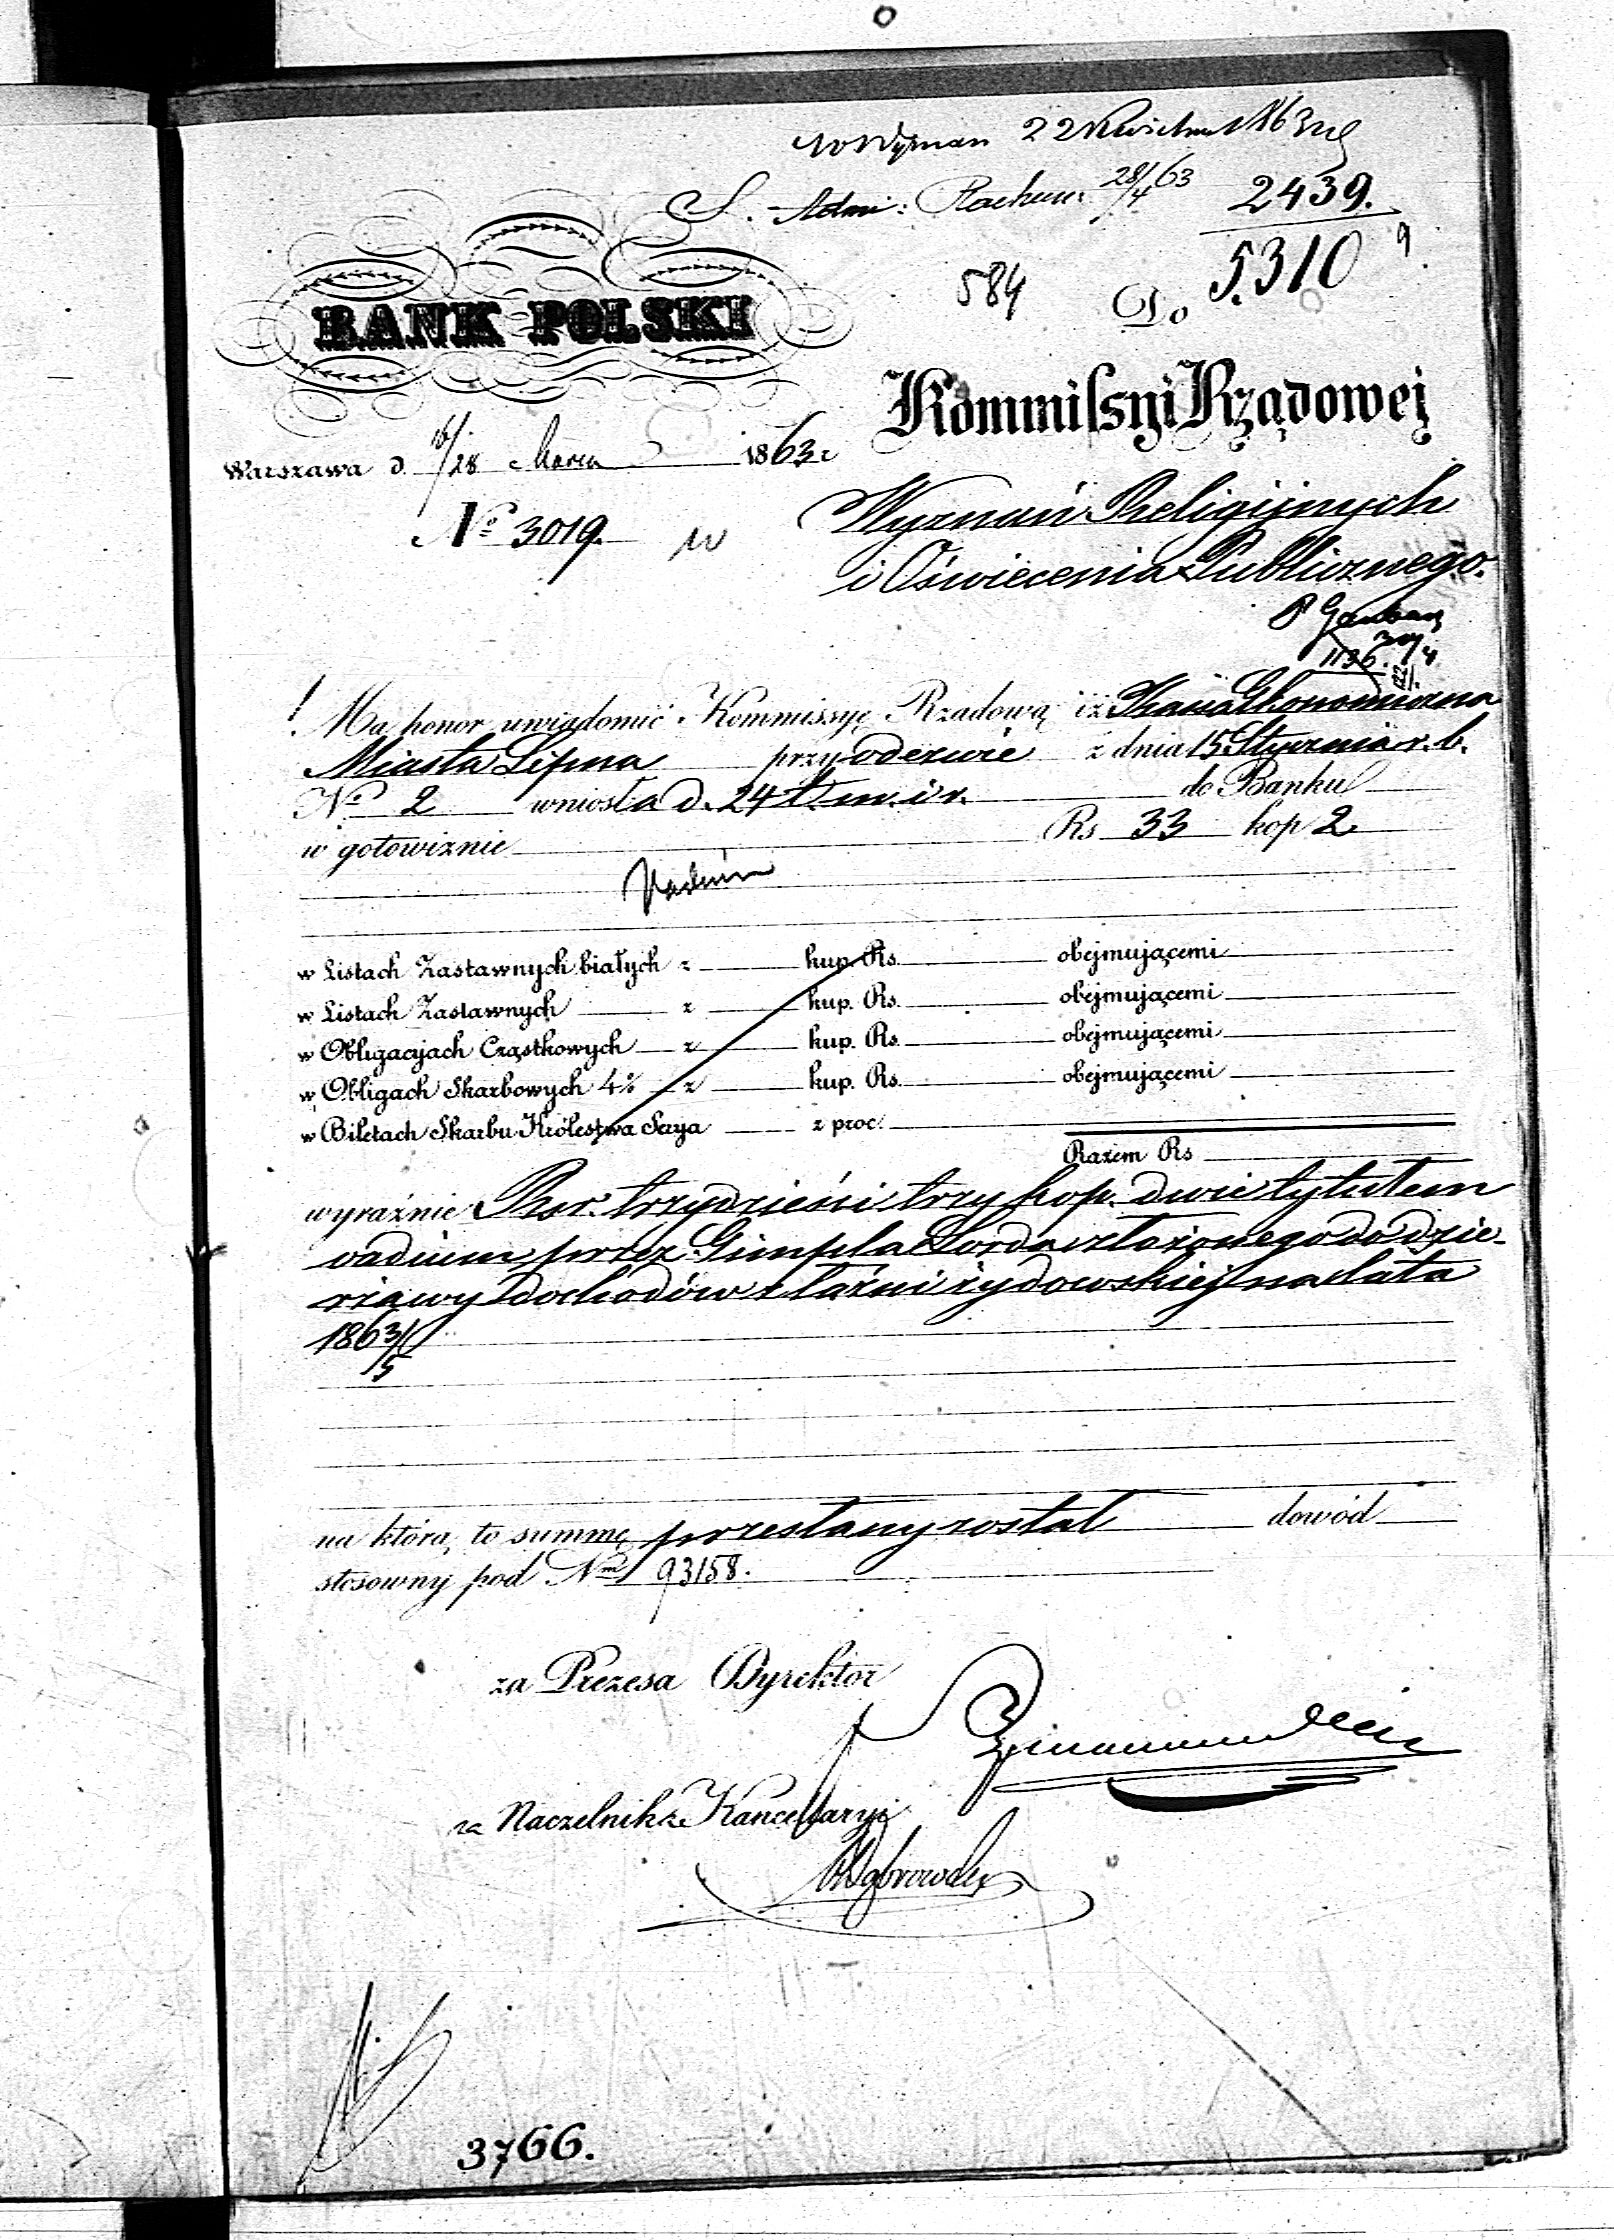 22 Kwietnia 1863
S. Adm: Rachun: 28/4 63 2439.
5310 9
584 Do
BANK POLSKI
Kommissyi Rządowej
Warszawa d. 16/28 Marca 1863 r
Wyznań Religijnych
No 3019. w
i Oświecenia Publicznego.
1136.
Ma honor uwiadomić Kommissyę Rządową iż Kassa Ekonomiczna
Miasta Lipna przy odezwie z dnia 15 Stycznia r. b.
No 2 wniosła d. 24 t. m. i r. do Banku
w gotowiznie Rs 33 kop 2
Vadium
w Listach Zastawnych białych z kup. Rs. obejmującemi
w Listach Zastawnych z kup. Rs. obejmującemi
w Obligacyjach Cząstkowych z kup. Rs. obejmującemi
w Obligach Skarbowych 4% z kup. Rs. obejmującemi
w Biletach Skarbu Królestwa Serya z proc:
Razem Rs
wyraźnie Rsr. trzydzieści trzy kop. dwie tytułem
vadium przez Gimpla Lorda złożonego do dzie-
rżawy dochodów z łaźni żydowskiej na lata
1863/5
na którą to summę przesłany został dowód
stosowny pod Nm 93158.
za Prezesa Dyrektor
za Naczelnika Kancellaryi
Dąbrowski
3766.